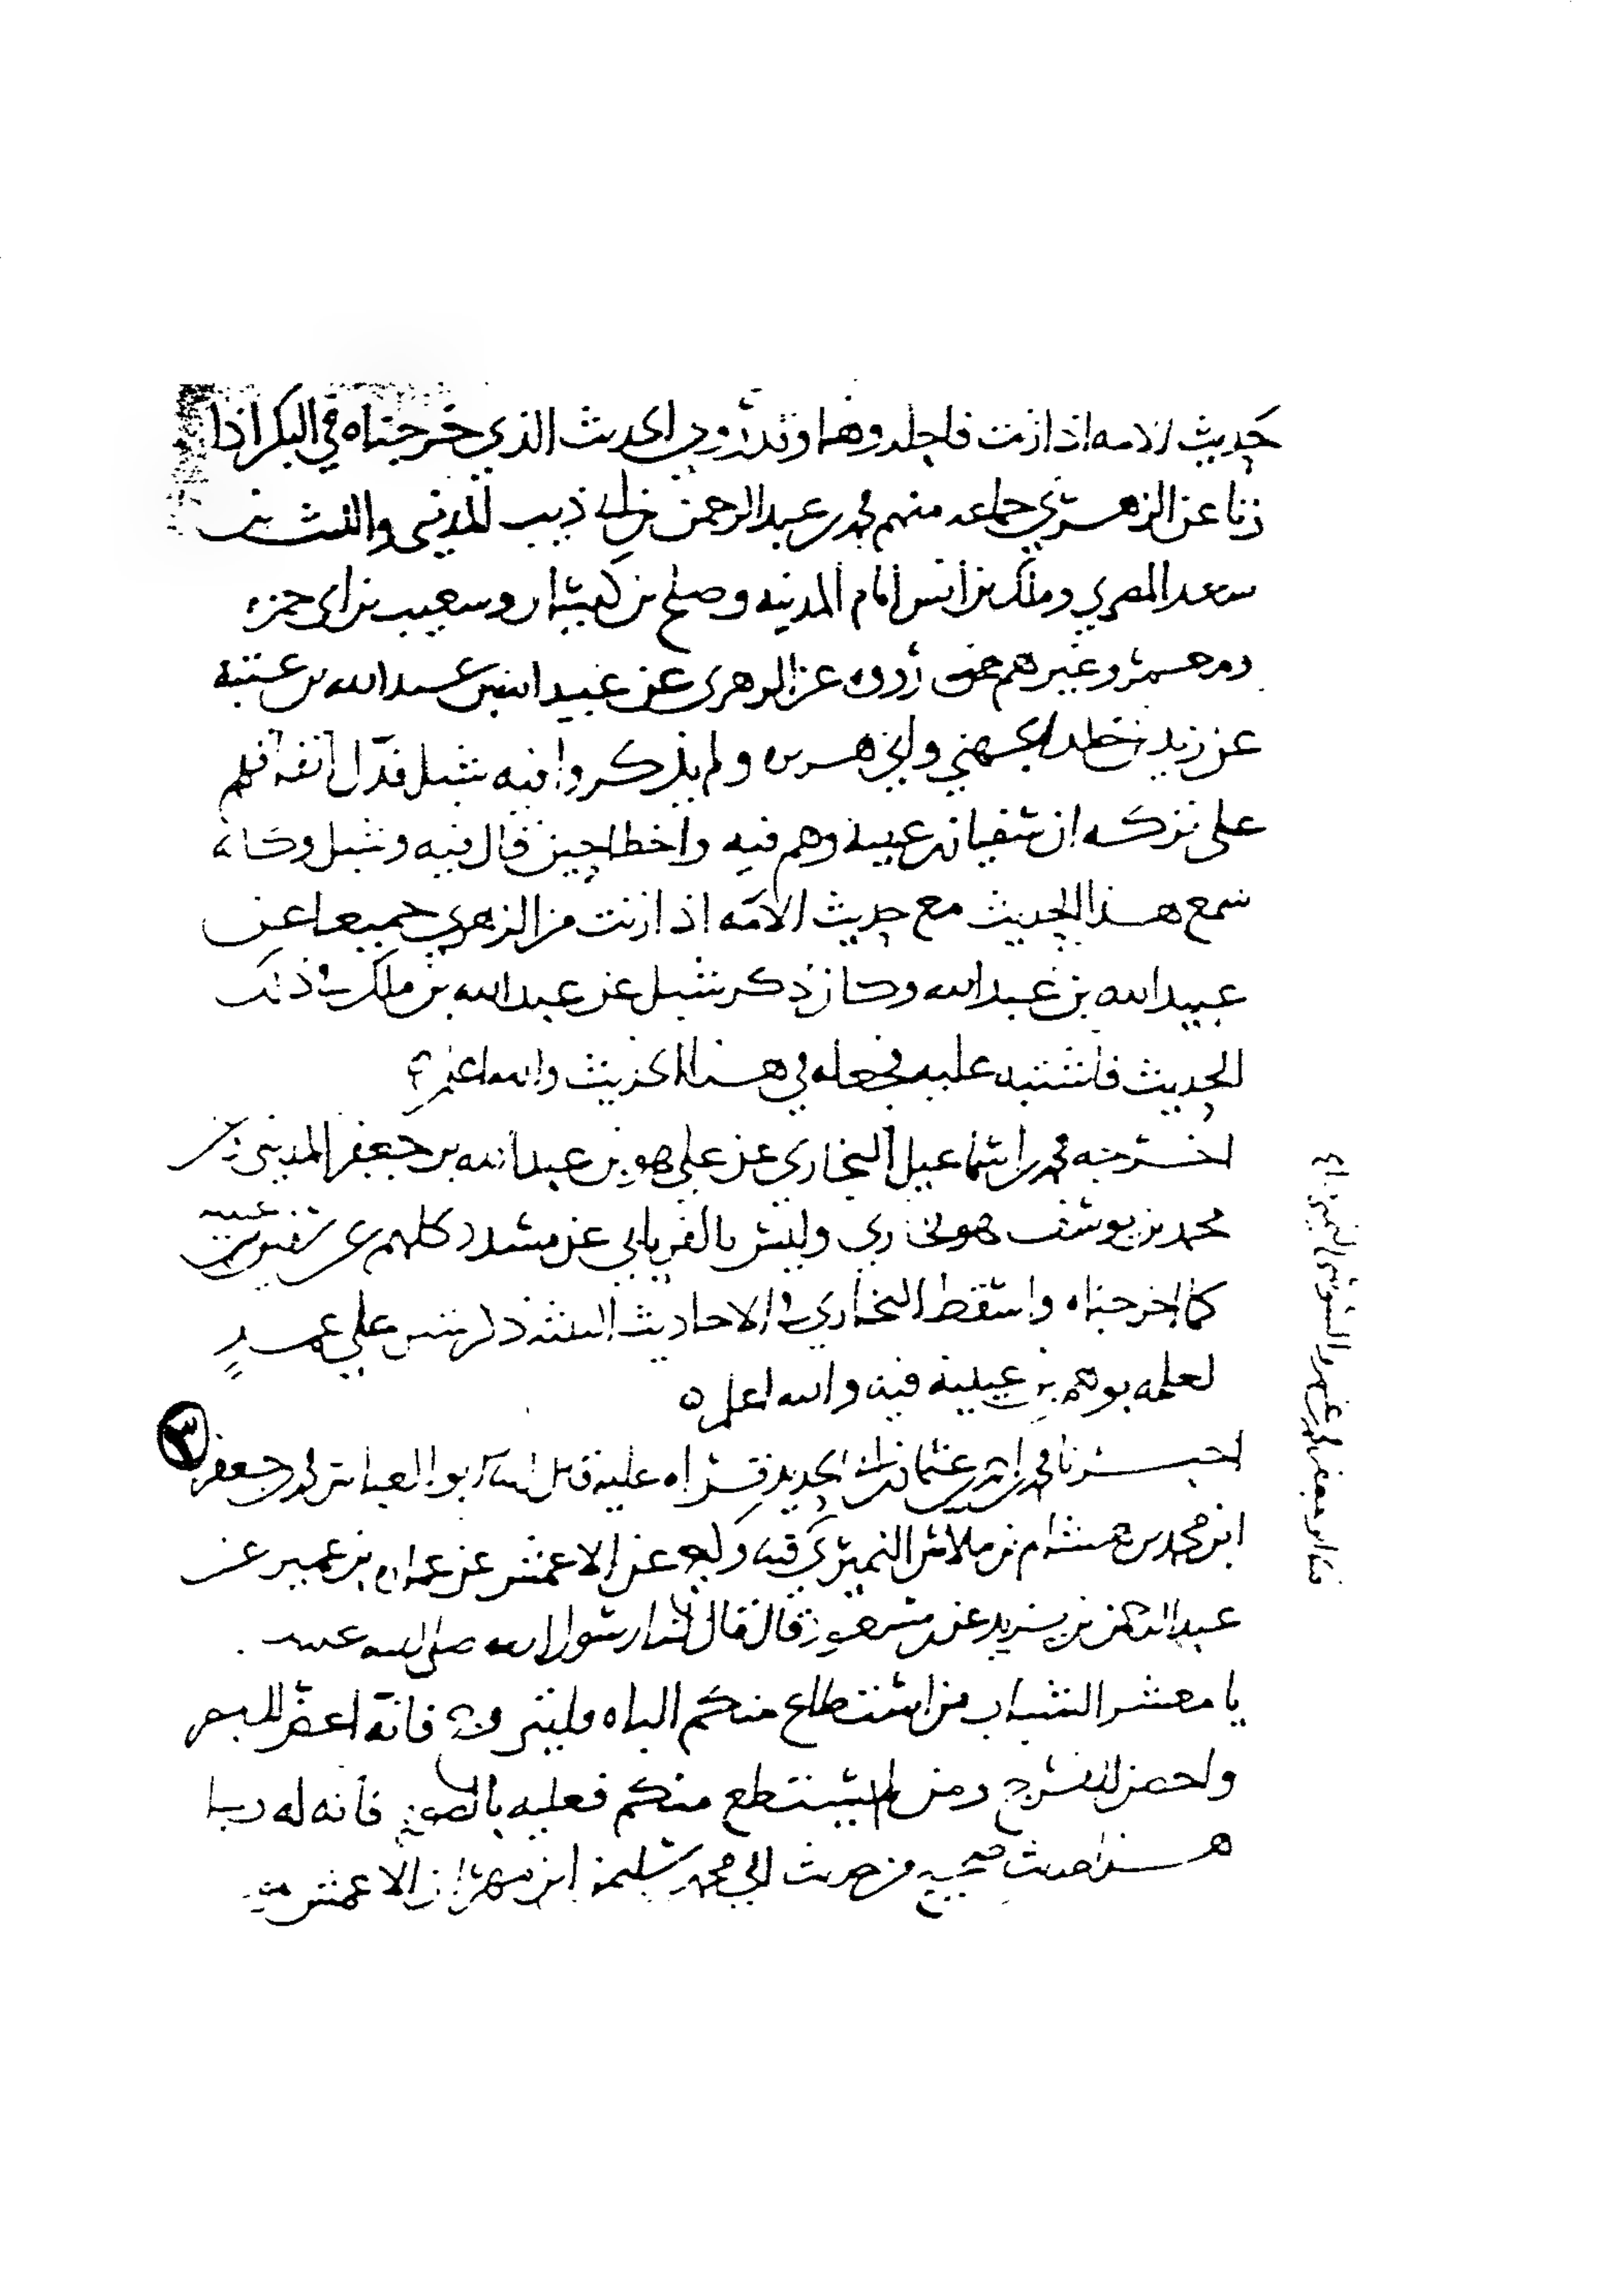 حديث الامه اذا زنت فاجلدوها وقد روي الحديث الذي خرجناه في البكر اذا
زنا عن الزهري جماعه منهم محمد بن عبد الرحمن بن ابي ذيب المديني والليث بن
سعد المصري وملك بن انس امام المدينه وصلح بن كيسان وشعيب بن ابي حمزه
ومعمر وغيرهم رووه عن الزهري عن عبيد الله بن عبد الله بن عتبة
عن زيد بن خلد الجهني وابي هريره ولم يذكروا فيه شبل فدل انفاقهم
على تركه ان سفيان بن عيينة وهم فيه واخطا حين قال فيه وشبل وكانه
سمع هذا الحديث مع حديث الامه اذا زنت من الزهري جميعا عن
عبيد الله بن عبد الله وكان ذكر شبل عن عبد الله بن ملك في ذلك
الحديث فاشتبه عليه فجعله في هذا الحديث والله اعلم
اخرجه محمد بن اسماعيل البخاري عن علي هو بن عبد الله بن جعفر المديني
محمد بن يوسف هو بخاري وليس بالفريابي عن مسدد كلهم عن سفين بن عيينه
كما اخرجناه واسقط البخاري في الاحاديث الستة ذكر شبل على عمد
لعلمه بوهم بن عيينة فيه والله اعلم
اخبرنا محمد بن احمد بن عثمان بن ابي الحديد قراه عليه قال ابنا ابو العباس محمد بن جعفر
ابن محمد بن هشام بن ملاس النميري وكيع عن الاعمش عن عماره بن عمير عن
عبد الرحمن بن يزيد عن بن مسعود قال قال لنا رسول الله صلى الله عليه
يا معشر الشباب من استطاع منكم الباه فليتزوج فانه اغض للبصر
واحصن للفرج ومن لم يستطع منكم فعليه بالصوم فانه له وجا
هذا حديث صحيح من حديث ابي محمد سليمن ابن مهران الاعمش